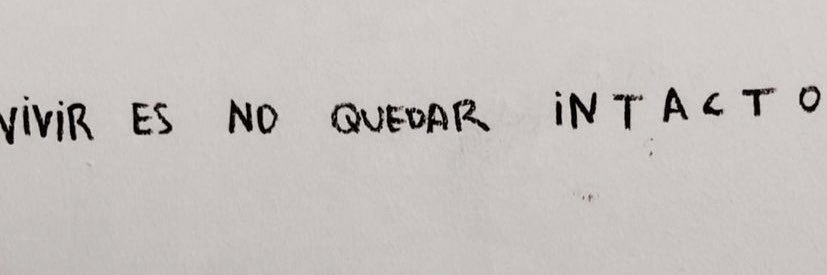 ViViR ES NO QUEDAR iNTACTO